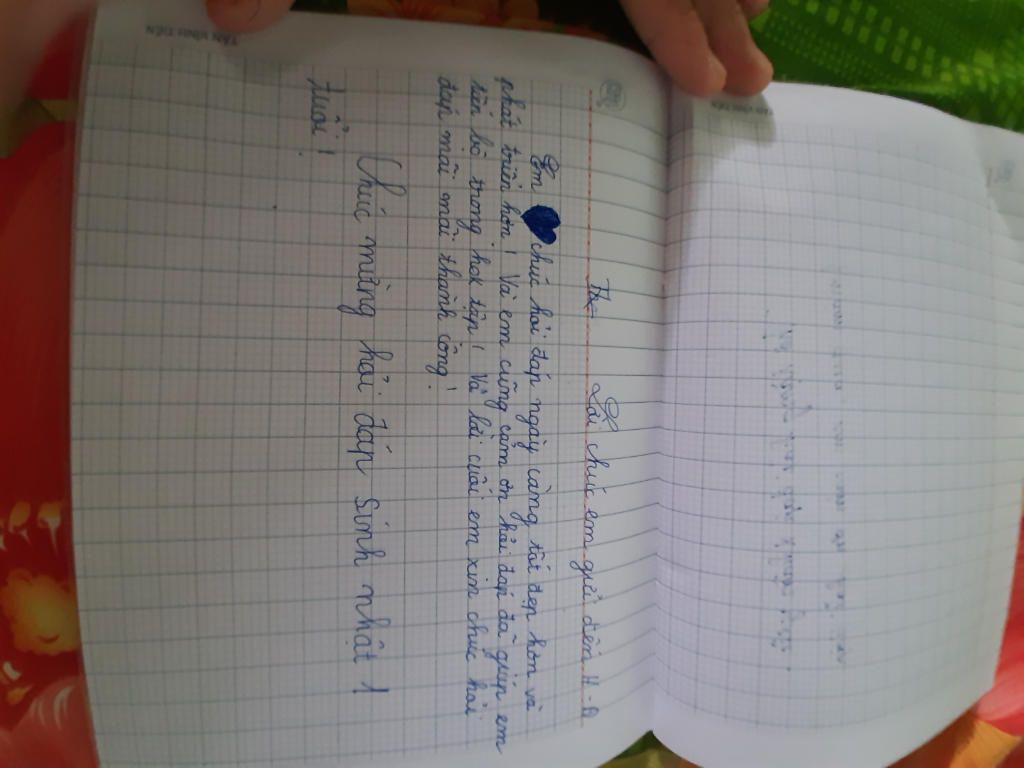 Lời chúc em gửi đến H-Đ
Em chúc hỏi đáp ngày càng tốt đẹp hơn và
phát triển hơn! Và em cũng cảm ơn hỏi đáp đã giúp em
tiến bộ trong học tập! Và lời cuối em xin chúc hỏi
đáp mãi mãi thành công!
Chúc mừng hỏi đáp sinh nhật 1
tuổi!
TÂN VĨNH TIẾN